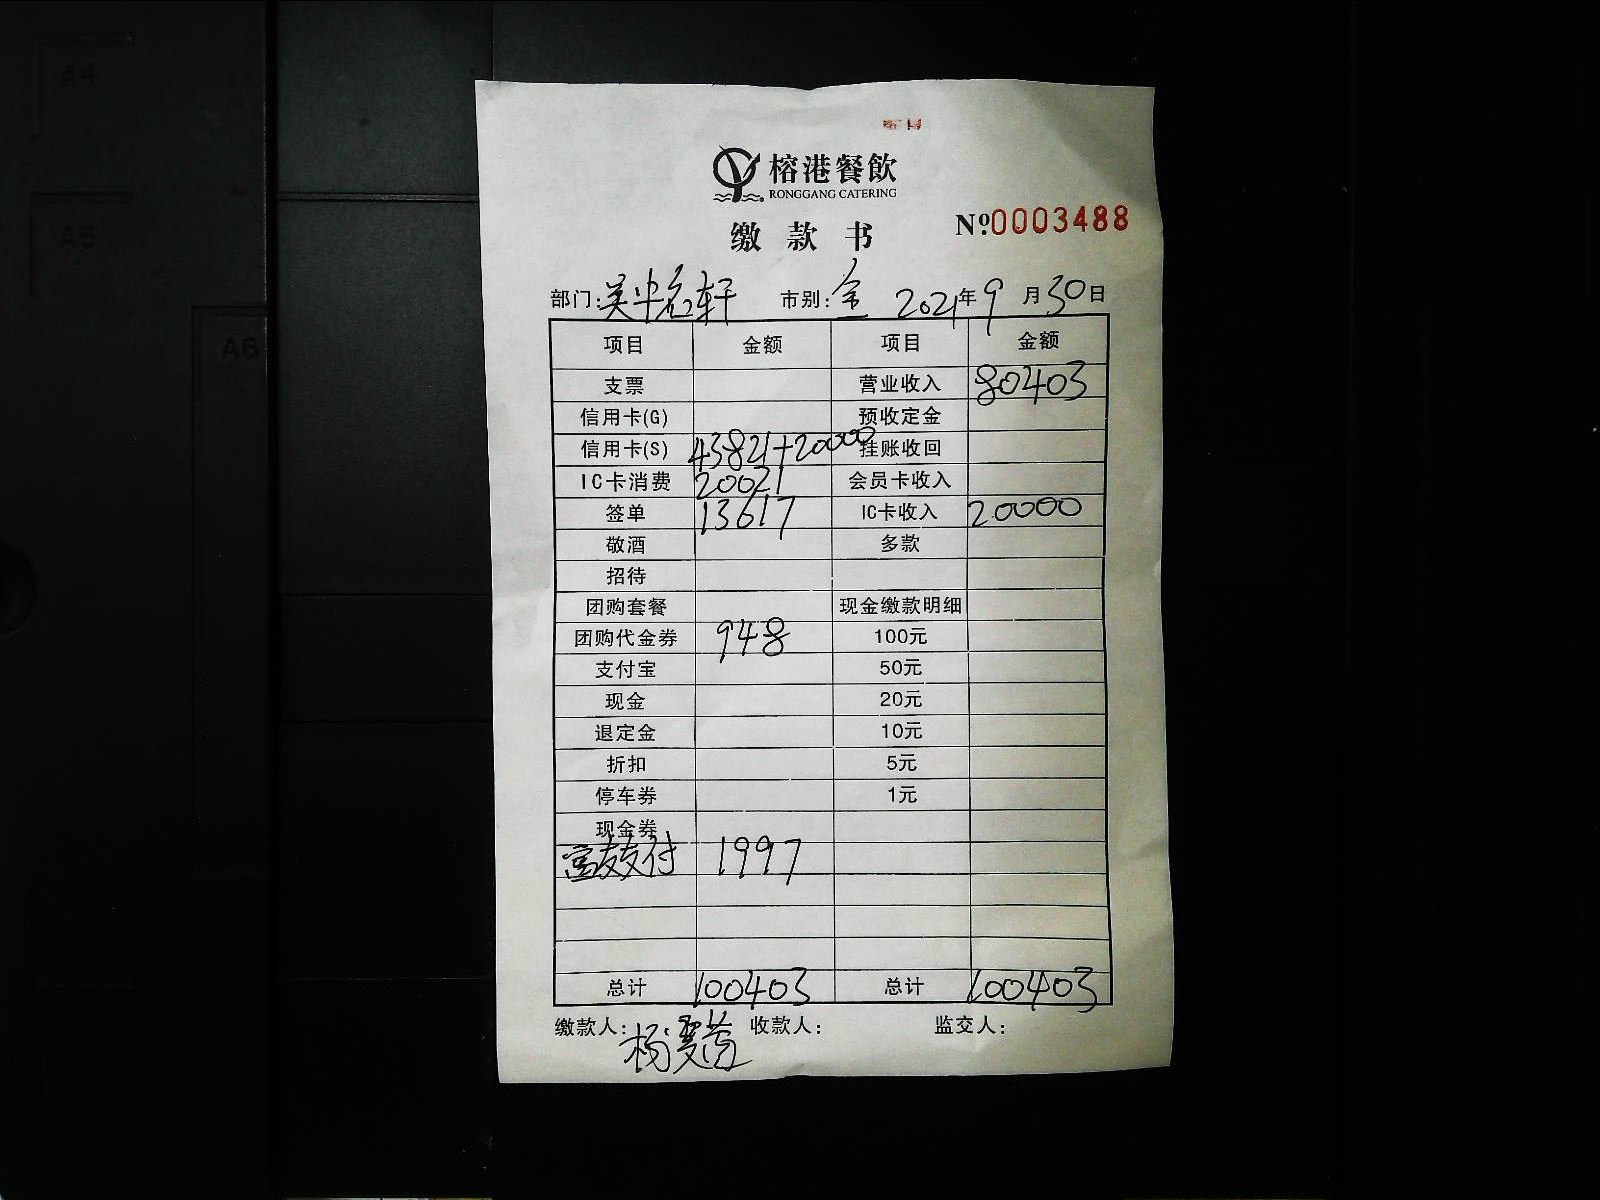 A4
A5
A6
榕港餐飲
RONGGANG CATERING
缴款书
№0003488
部门：吴中名轩 市别：全 2021年9月30日
项目 金额 项目 金额
支票 营业收入 80403
信用卡(G) 预收定金
信用卡(S) 43821+20000 挂账收回
IC卡消费 20021 会员卡收入
签单 13617 IC卡收入 20000
敬酒 多款
招待
团购套餐 现金缴款明细
团购代金券 948 100元
支付宝 50元
现金 20元
退定金 10元
折扣 5元
停车券 1元
现金券
支付 1997
总计 100403 总计 100403
缴款人：杨 收款人： 监交人：